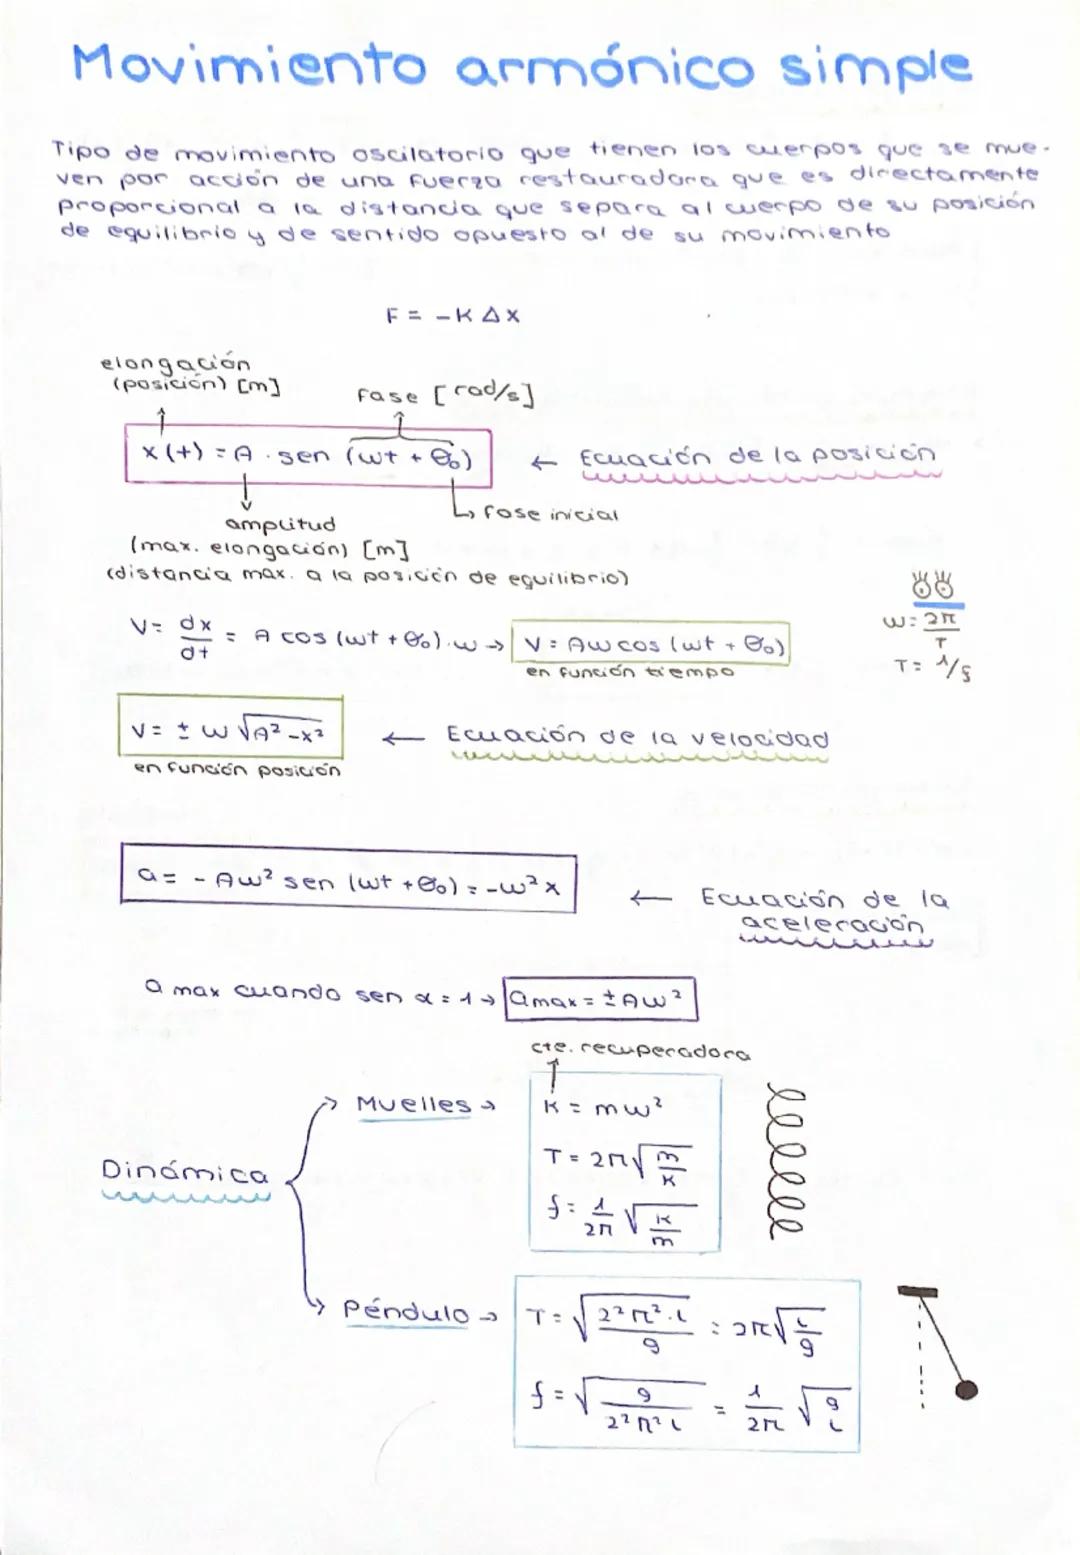 Movimiento armónico simple
Tipo de movimiento oscilatorio que tienen los cuerpos que se mue-
ven por acción de una fuerza restauradora que es directamente
proporcional a la distancia que separa al cuerpo de su posición
de equilibrio y de sentido opuesto al de su movimiento
F = -K Δx
elongación
(posición) [m]
fase [rad/s]
x(t) = A · sen (ωt + θ₀)
← Ecuación de la posición
↳ fase inicial
amplitud
(max. elongación) [m]
(distancia max. a la posición de equilibrio)
V = dx/dt = A cos (ωt + θ₀) · ω → V = Aω cos (ωt + θ₀)
en función tiempo
ω = 2π/T
T = 1/f
V = ± ω √(A² - x²)
← Ecuación de la velocidad
en función posición
a = - Aω² sen (ωt + θ₀) = -ω² x
← Ecuación de la
aceleración
a max cuando sen α = 1 → amax = ± Aω²
cte. recuperadora
Muelles →
K = mω²
T = 2π √(m/K)
f = 1/2π √(K/m)
Dinámica
Péndulo →
T = √(2²π²·L/g) = 2π √(L/g)
f = √(g/2²π²L) = 1/2π √(g/L)